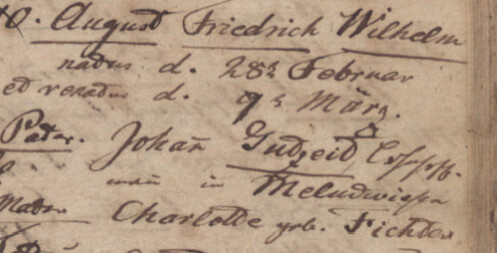 10. August Friedrich Wilhelm
natus d. 28t Februar
et renatus d. 7t März.
Pater. Johan̄ Gudzeid,
in
Mater Charlotte geb. Fichter